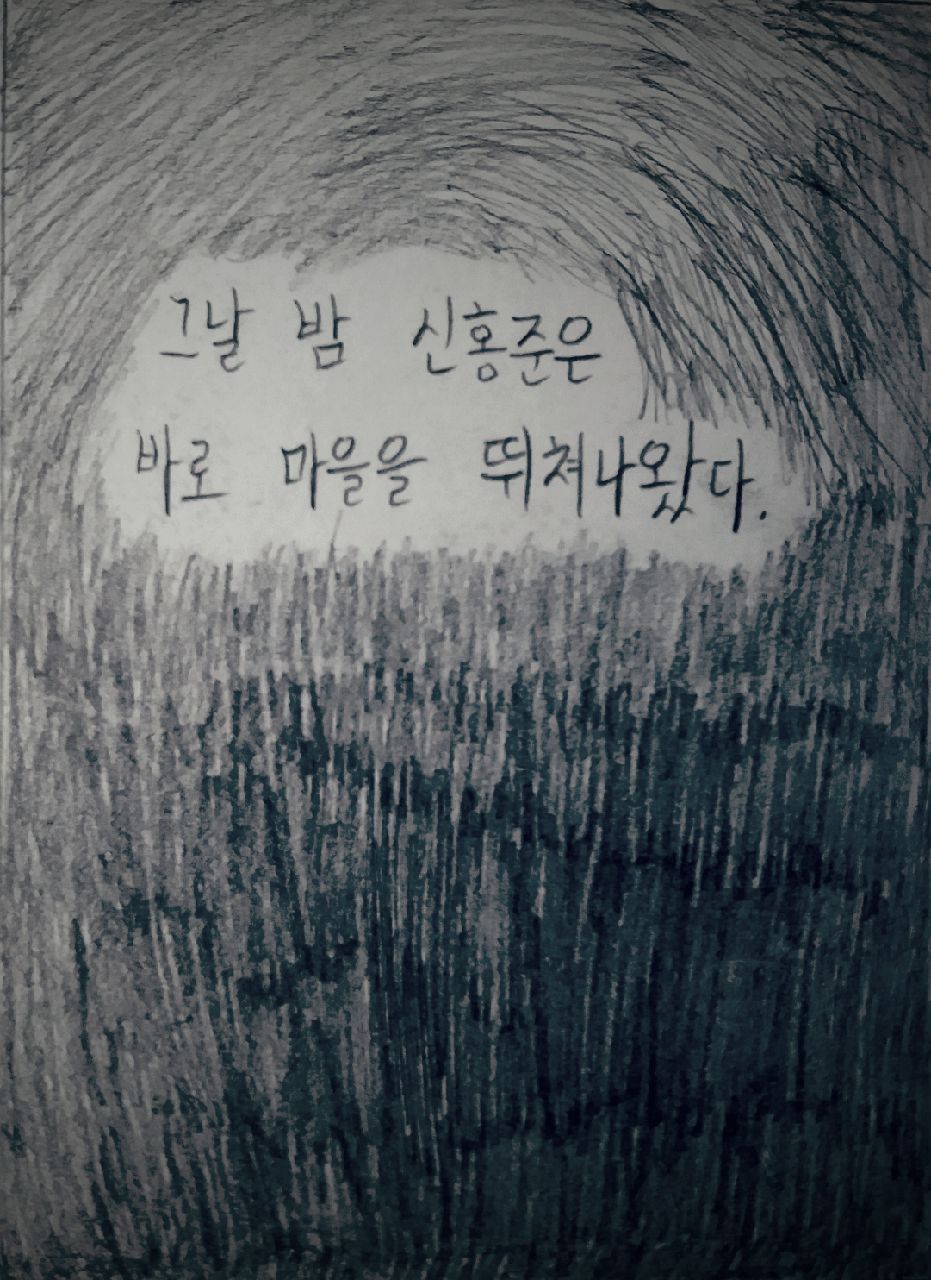 그날 밤 신홍준은
바로 마을을 뛰쳐나왔다.